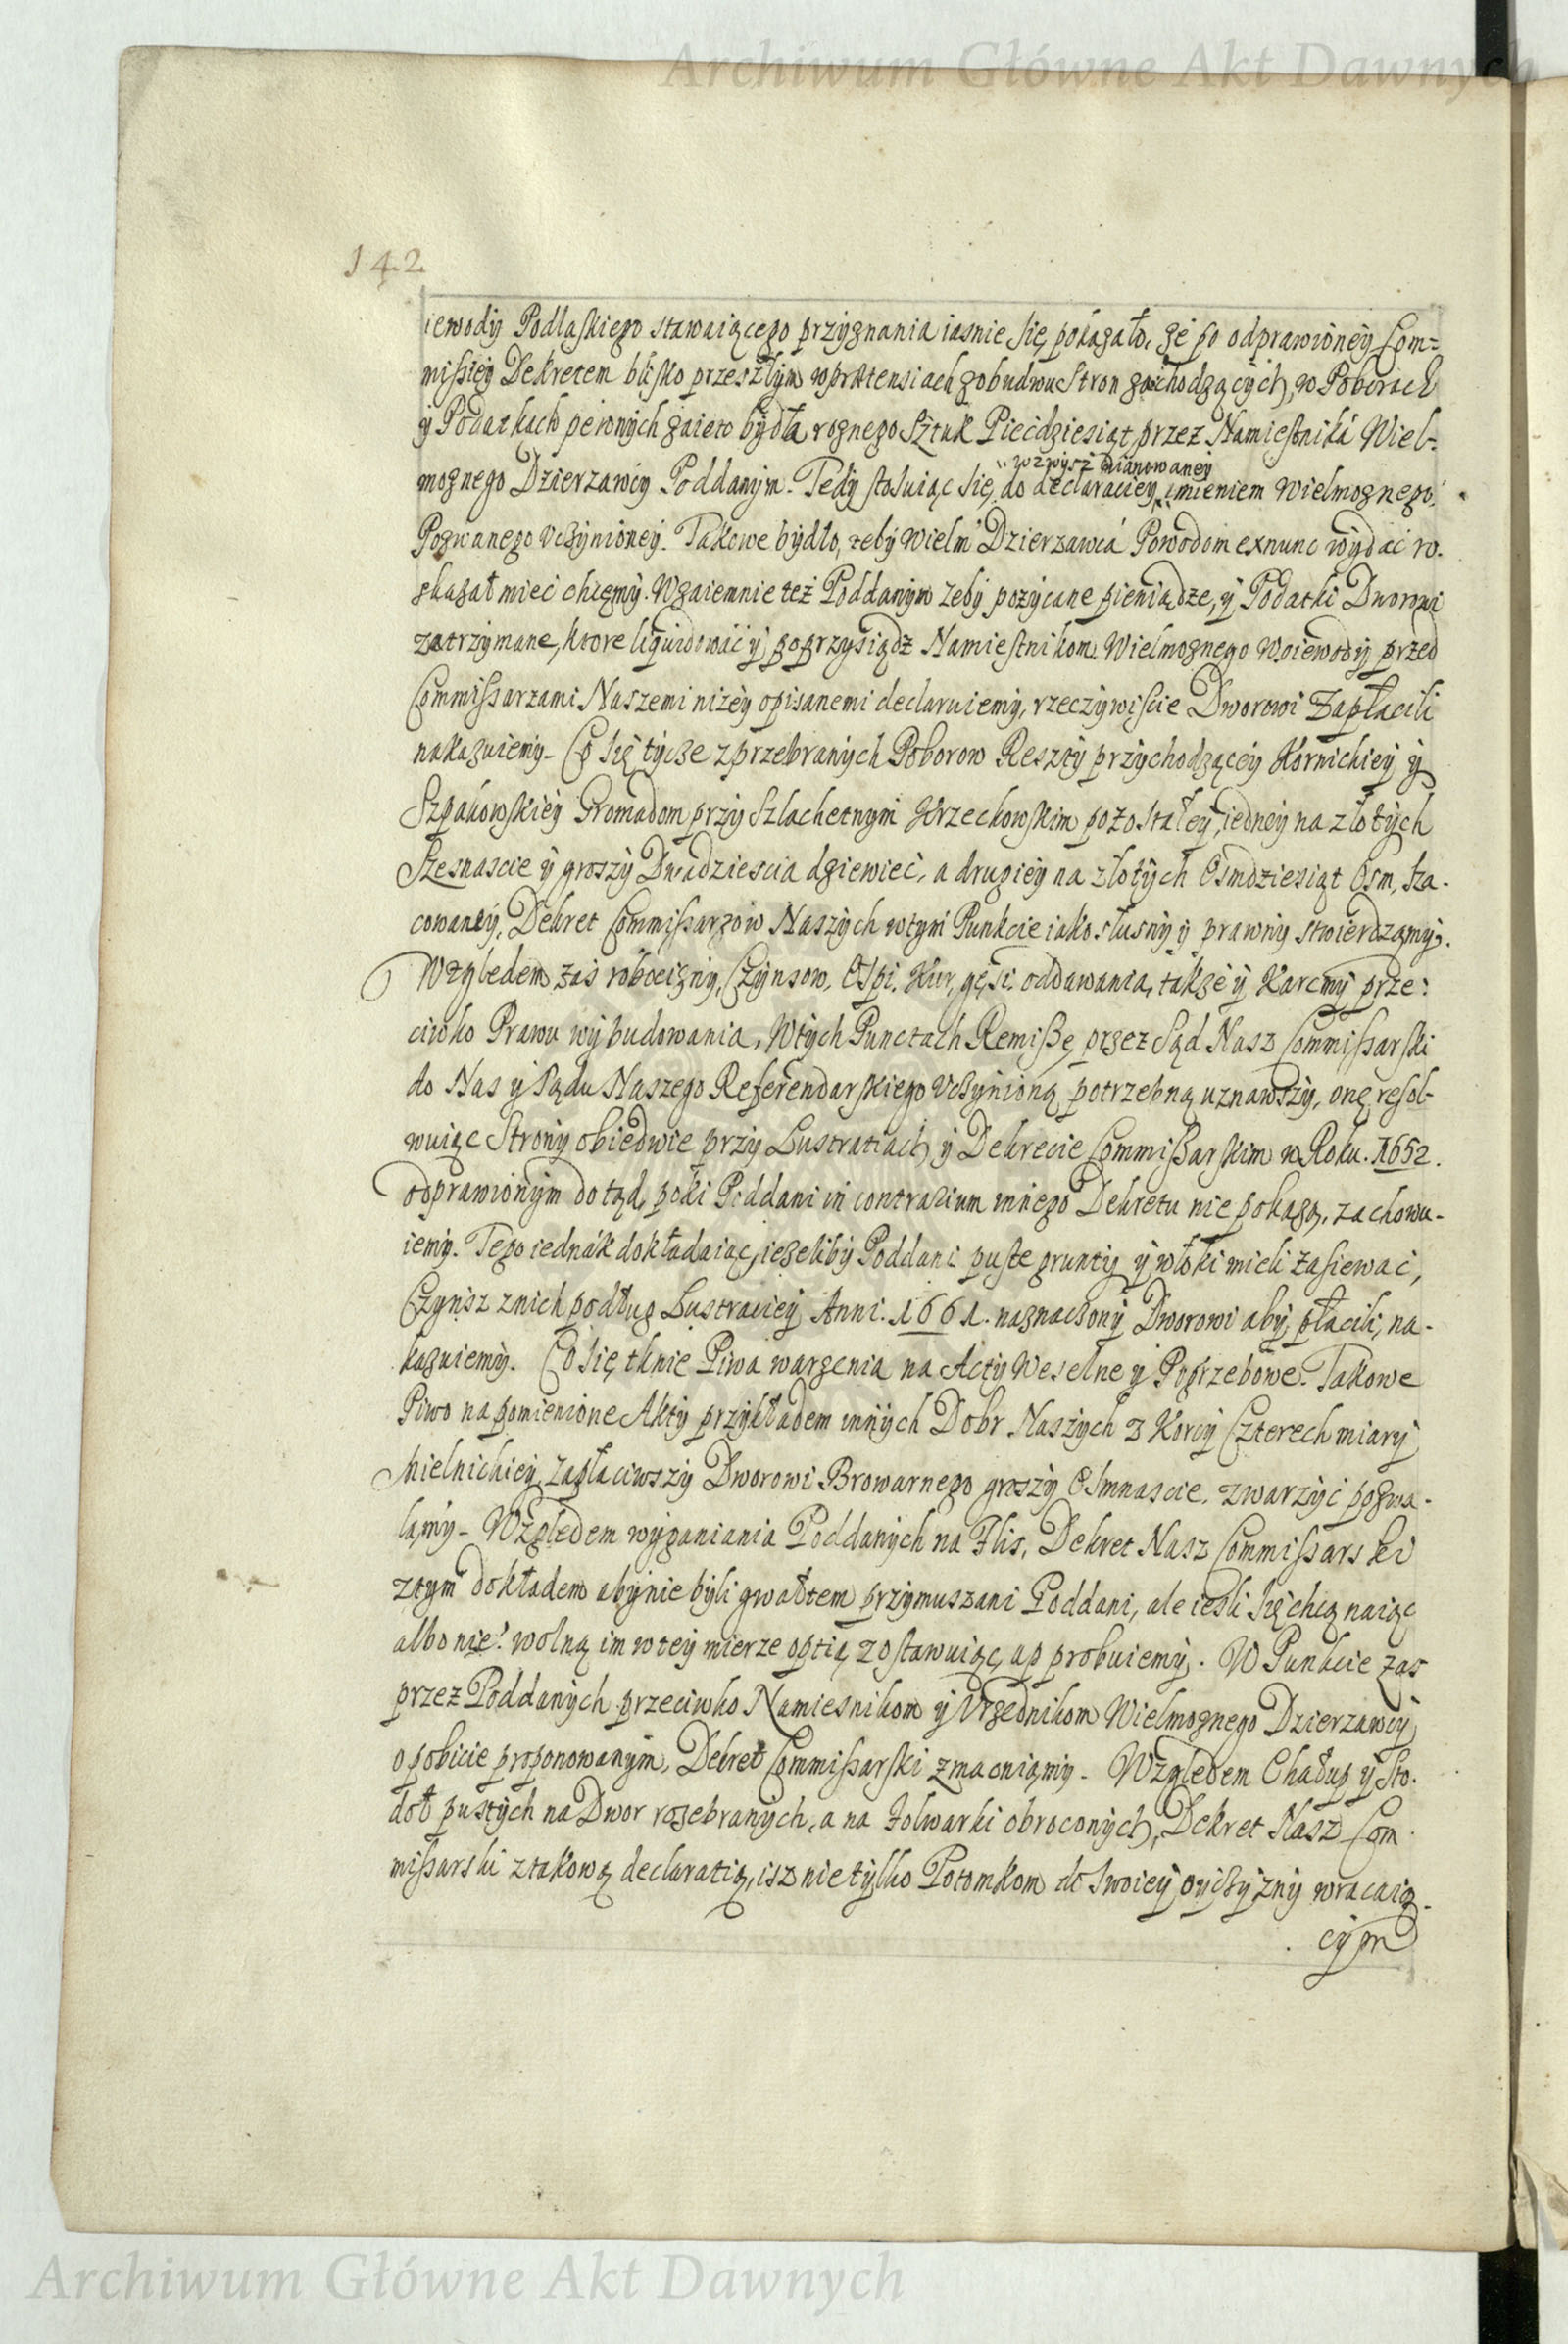 Archiwum Główne Akt Dawnych
142
iewody Podlaskiego stawaiącego przyznania iasnie się pokazało, ze po odprawioney Com=
missiey Dekretem blisko przeszłym w prætensiach z obudwu Stron zachodzących, w Poborach
y Podatkach pewnych zaięto bydła rognego Sztuk Piecdziesiąt przez Namiestniká Wiel-
wzwysz mianowaney
mognego Dzierzawcy Poddanym. Tedy stosuiąc się do declaraciey imieniem Wielmoznego
Pozwanego Uczynioney. Takowe bydło, zeby Wielm Dzierzawcá Powodom exnunc wydać ro-
skazał mieć chcęmy. Wzaiemnie też Poddanym zeby pozycane pieniądze, y Podatki Dworowi
zatrzymane, ktore liquidować y poprzysiądz Namiestnikom Wielmoznego Woiewody przed
Commissarzami Naszemi nizey opisanemi declaruiemy, rzeczywiscie Dworowi Zapłacili
nakazuiemy. Co się tycze z przebranych Poborow Reszty przychodzącey Kornickiey y
Szpakowskiey Gromadom przy Szlachetnym Krzeckowskim pozostałey, iedney na złotych
Szesnascie y groszy Dwadziescia dziewiec, a drugiey na złotych Osmdziesiąt Osm, sza-
cowaney, Dekret Commissarzow Naszych w tym Punkcie iako słusny y prawny stwierdzamy.
Względem zaś robocizny, Czynsow, Ospi, Kur, gęsi oddawania, takze y Karcmy prze:
ciwko Prawu wybudowania, W tych Punctach Remissę przez Sąd Nasz Commissarski
do Nas y Sądu Naszego Referendarskiego Uczynioną potrzebną uznawszy, onę resol-
wuiąc Strony obiedwie przy Lustratiach y Dekrecie Commissarskim w Roku. 1652.
odprawionym do tąd, poki Poddani in contrarium innego Dekretu nie pokazą, zachowu-
iemy. Tego iednák dokładaiąc, iezeliby Poddani puste grunty y włoki mieli zasiewac,
Czynsz znich podług Lustraciey Anni. 1661. naznaczony Dworowi aby płacili, na-
kazuiemy. Co się tknie Piwa warzenia na Acty Weselne y Pogrzebowe. Takowe
Piwo na pomienione Akty przykładem innych Dobr Naszych z Korcy Czterech miary
Mielnickiey, zapłaciwszy Dworowi Browarnego groszy Osmnascie, zwarzyć pozwa-
lamy. Względem wyganiania Poddanych na Flis, Dekret Nasz Commissarski
z tym dokładem aby nie byli gwałtem przymuszani Poddani, ale iesli się chcą naiąc
albo nie! wolną im w tey mierze optią zostawuiąc, approbuiemy. W Punkcie zas
przez Poddanych przeciwko Namiesnikom y Urzednikom Wielmoznego Dzierzawcy
o pobicie proponowanym, Dekret Commissarski zmacniamy. Względem Chałup y Sto-
doł pustych na Dwor rozebranych, a na folwarki obroconych, Dekret Nasz Com
missarski z takową declaratią, isz nie tylko Potomkom do swoiey oyczyzny wracaią
cym
Archiwum Główne Akt Dawnych